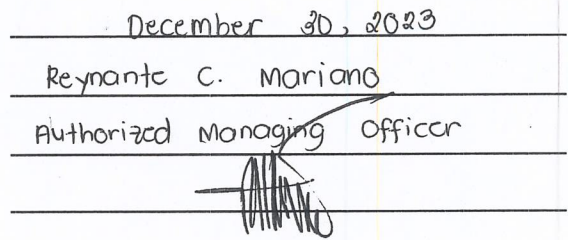 December 30, 2023
Reynante C. Mariano
Authorized Managing Officer